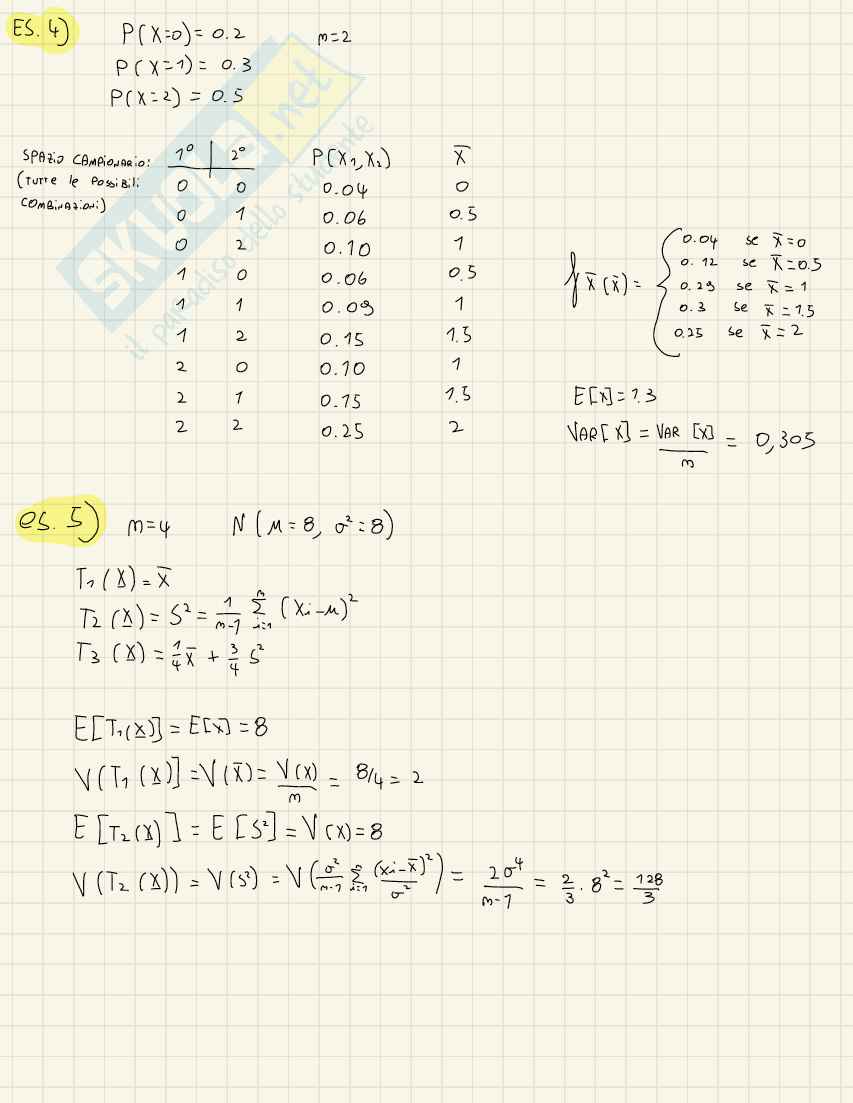 ES. 4)
P(X=0) = 0.2    n=2
P(X=1) = 0.3
P(X=2) = 0.5
SPAZIO CAMPIONARIO:
(TUTTE le POSSIBILI
COMBINAZIONI)
1° | 2°    P(X₁,X₂)    X̄
0    0    0.04    0
0    1    0.06    0.5
0    2    0.10    1
1    0    0.06    0.5
1    1    0.09    1
1    2    0.15    1.5
2    0    0.10    1
2    1    0.15    1.5
2    2    0.25    2
f X̄ (x̄) =
0.04    se x̄=0
0.12    se x̄=0.5
0.29    se x̄=1
0.3    se x̄=1.5
0.25    se x̄=2
E[X] = 1.3
VAR[X] = VAR [X]/n = 0,305
es. 5)    n=4    N(μ=8, σ²=8)
T₁(X) = X̄
T₂(X) = S² = 1/(n-1) Σᵢ₌₁ⁿ (Xi-μ)²
T₃(X) = 1/4 X̄ + 3/4 S²
E[T₁(X)] = E[X] = 8
V(T₁(X)] = V(X̄) = V(X)/n = 8/4 = 2
E[T₂(X)] = E[S²] = V(X) = 8
V(T₂(X)) = V(S²) = V(σ²/(n-1) Σᵢ₌₁ⁿ (Xi-X̄)²/σ²) = 2σ⁴/(n-1) = 2/3 · 8² = 128/3
SKUOLA.net
il paradiso dello studente